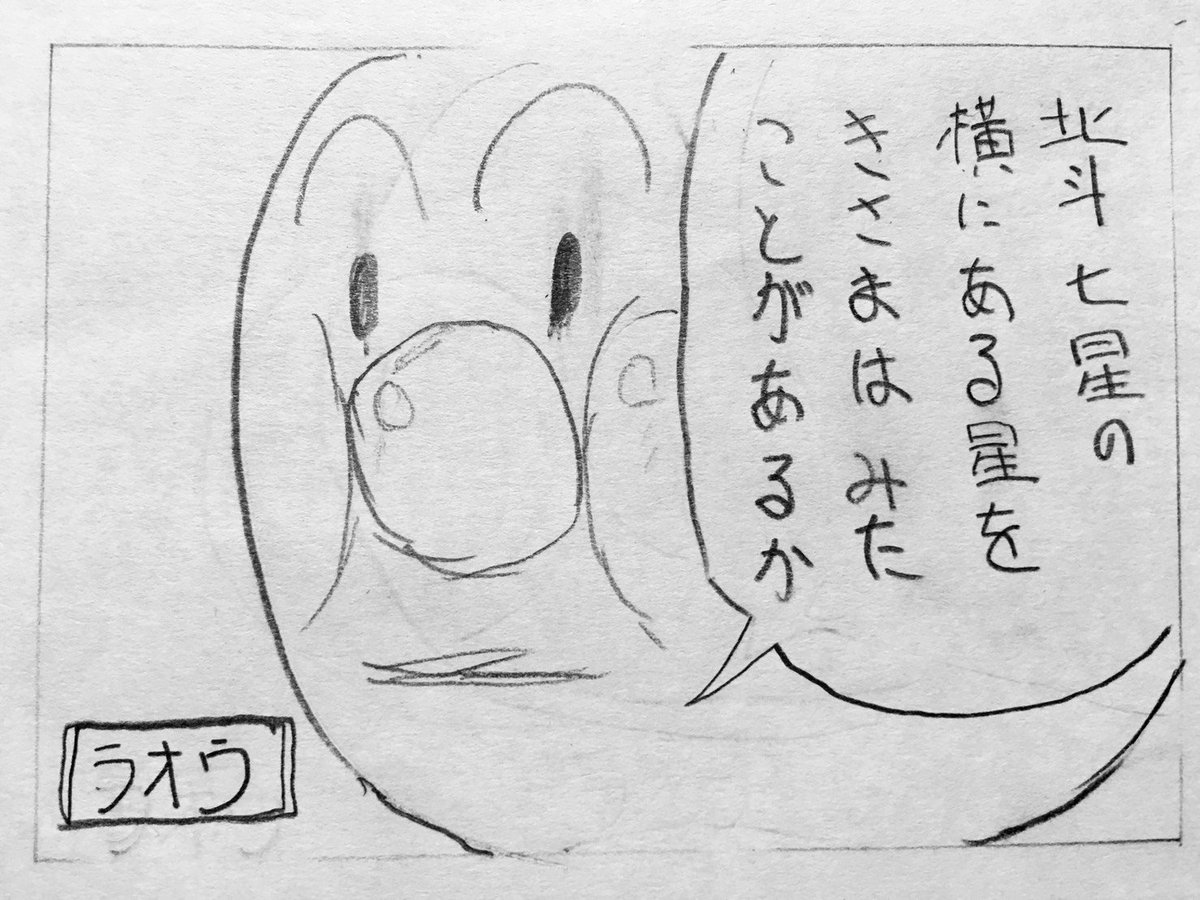 北斗七星の
横にある星を
きさまはみた
ことがあるか
ラオウ